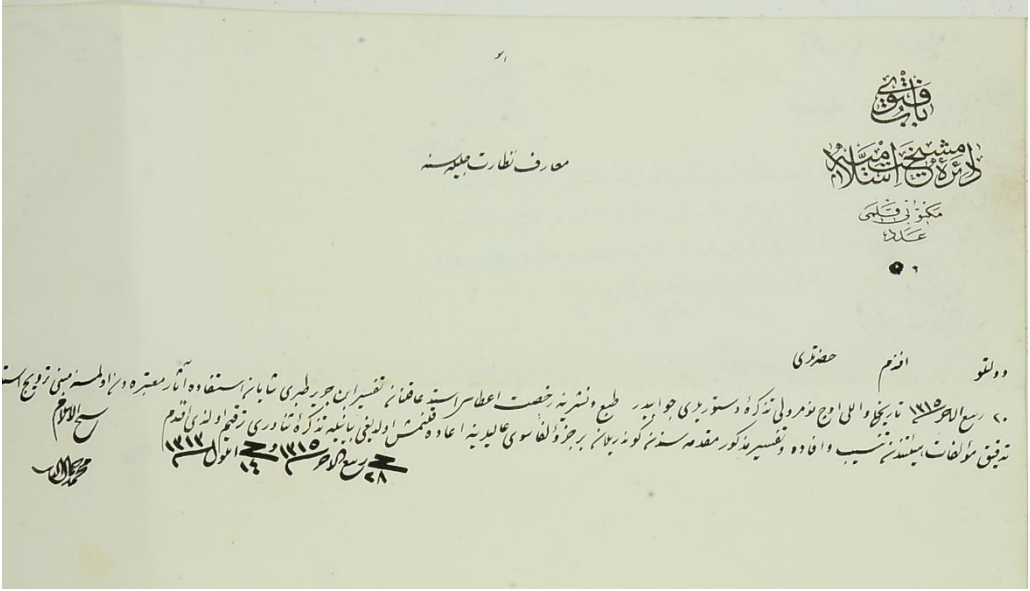 باب فتوى
دائرهٔ مشيخت اسلاميه
مكتوبى قلمى
عدد
معارف نظارت جليله سنه
دولتلو افندم حضرتلرى
٢٠ ربيع الاخر ١٣١٥ تاريخلى واللى اوچ نومرولى تذكرهٔ دستوريلرى جوابيدر طبع و نشرينه رخصت اعطاسى استدعا قلنان تفسير ابن جرير طبرى شايان استفاده آثار معتبره دن اولمسنه مبنى ترويج
تدقيق مؤلفات هيئتندن تنسيب و افاده و تفسير مذكور مقدمه سندن كوندريلان بر جزؤ لفا سوى عاليلرينه اعاده قلنمش اولديغى بيانيله تذكرهٔ ثناورى ترقيم اولندى افندم
فى ٢٨ ربيع الاخر سنه ١٣١٥ و فى ١٤ ايلول سنه ١٣١٣
شيخ الاسلام
محمد جمال الدين